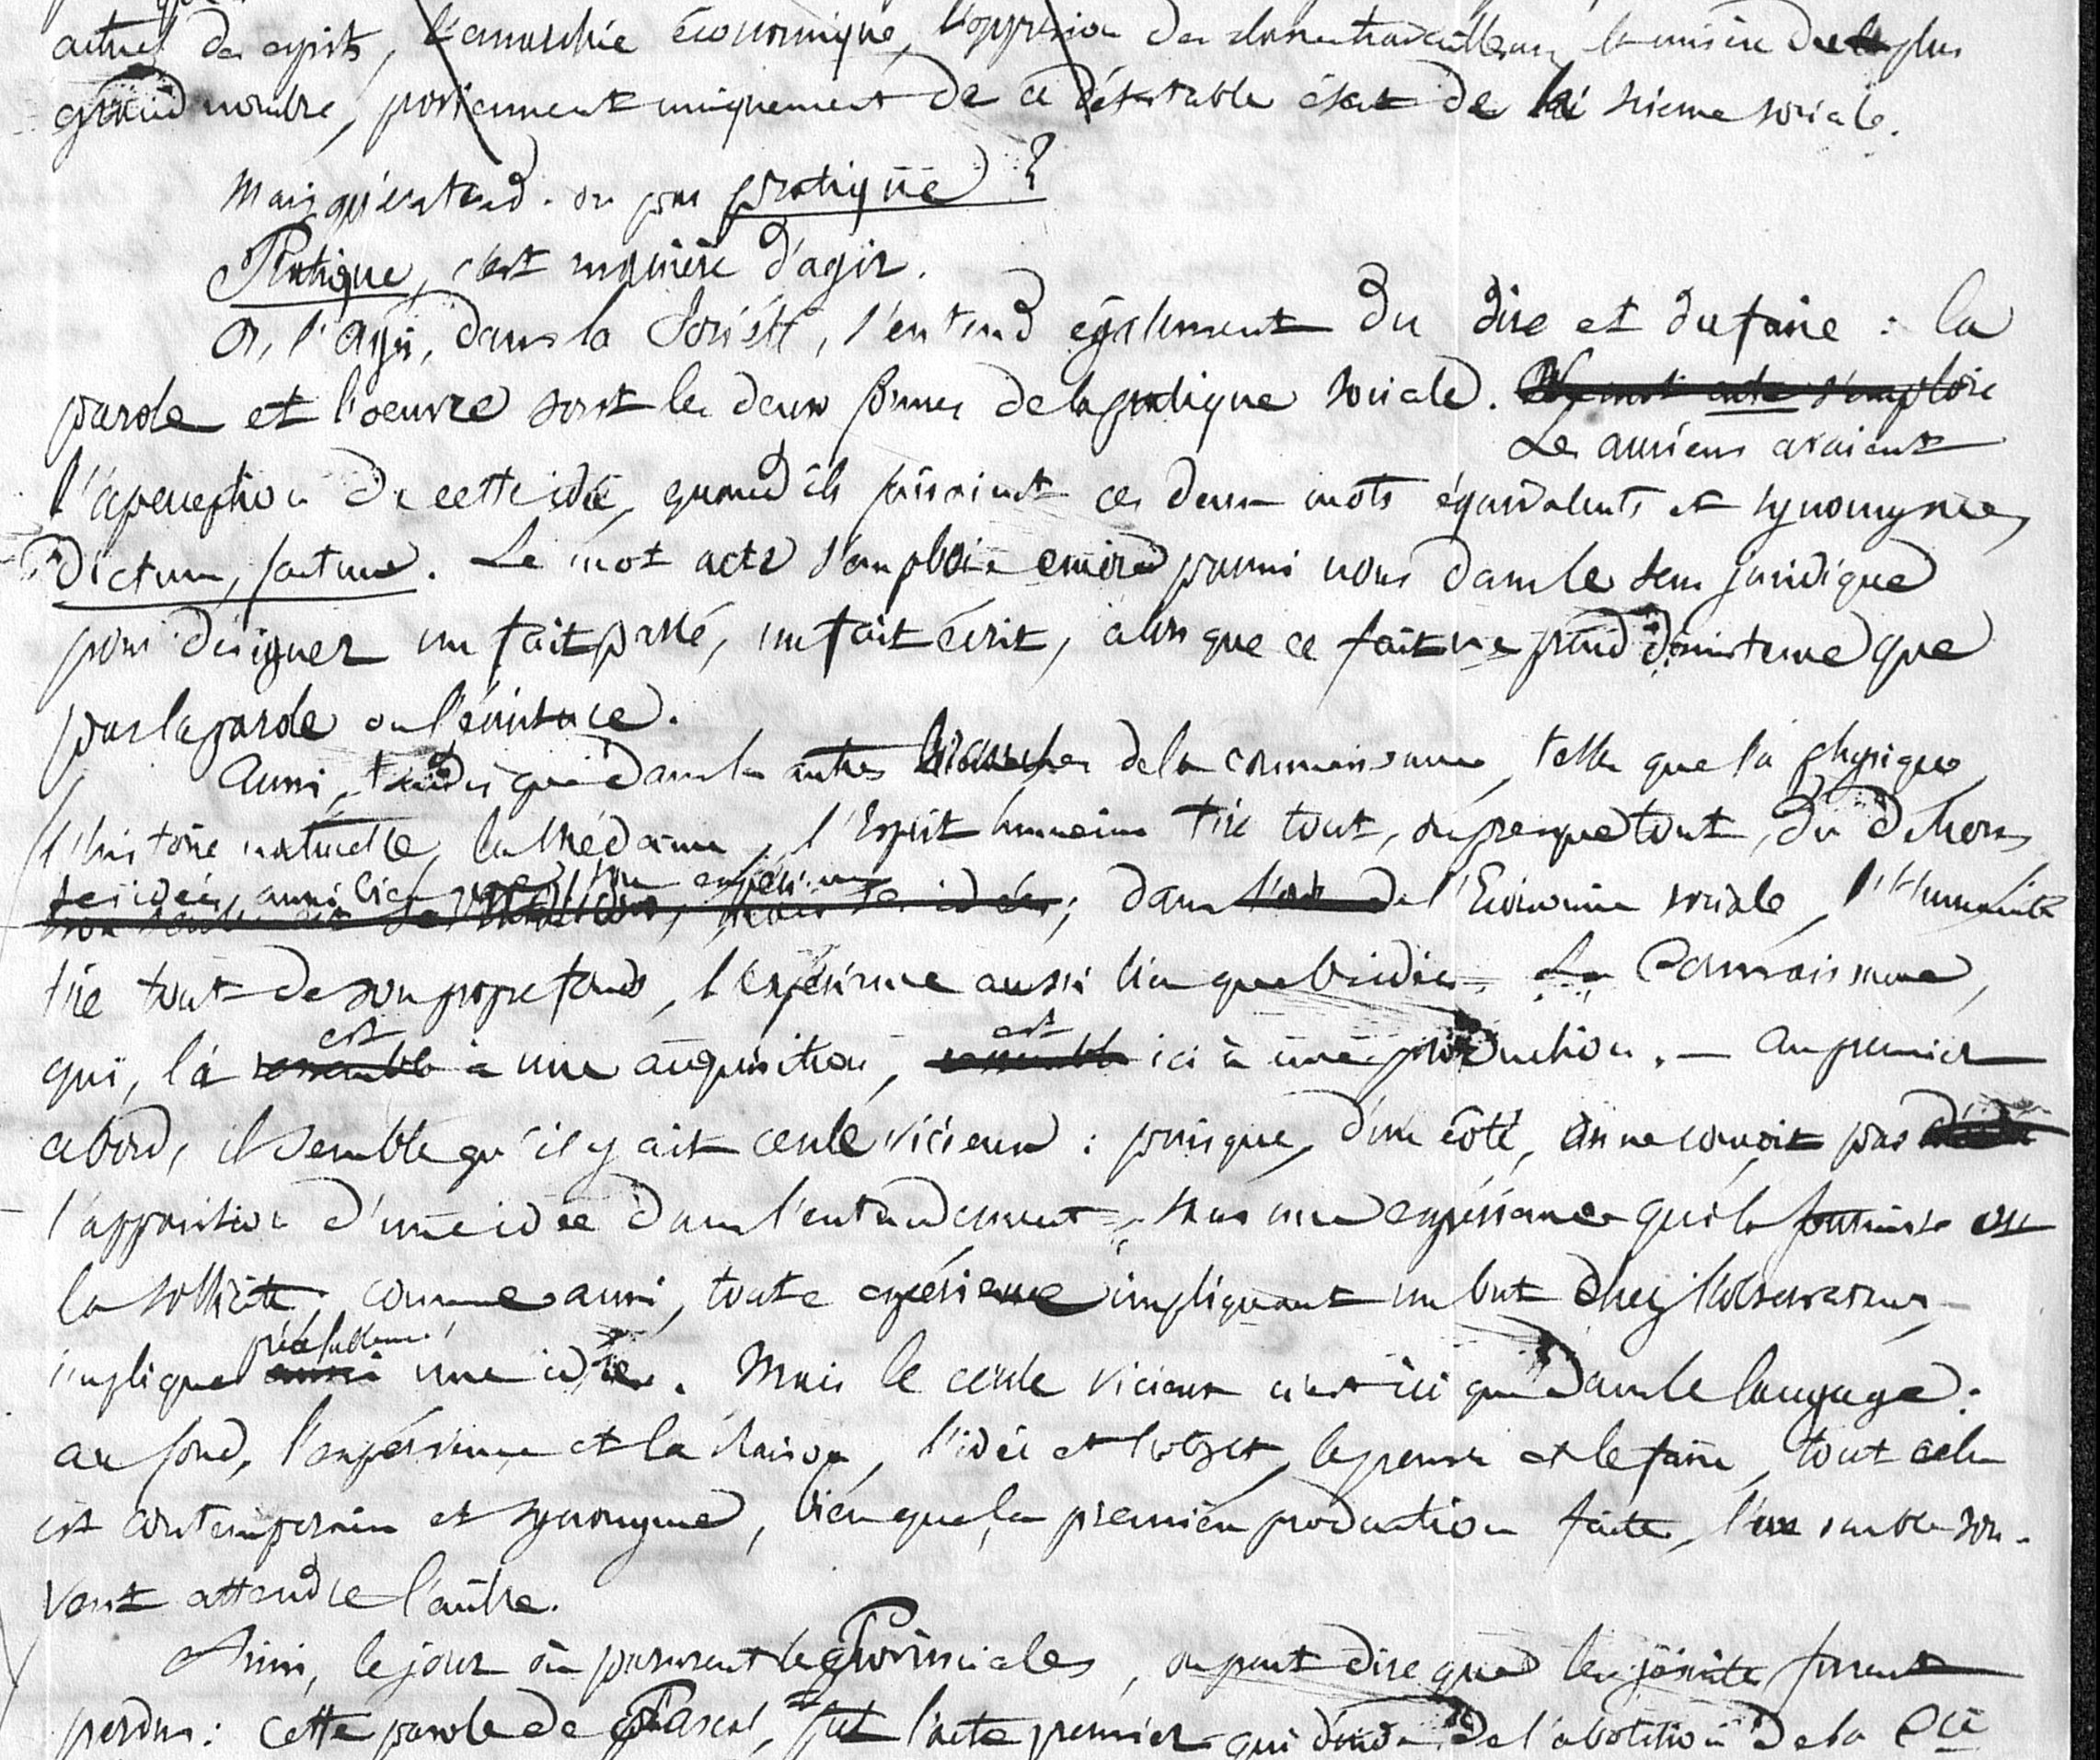 actuel des esprits, l'anarchie économique, l'oppression des classes travailleuses, la misère du plus
grand nombre, proviennent uniquement de ce détestable état de la science sociale.
Mais qu'entend-on par pratique ?
Pratique, c'est manière d'agir.
Or, l'agir, dans la Société, s'entend également du dire et du faire : la
parole et l'oeuvre sont les deux formes de la pratique sociale. Le mot acte s'emploie
Les anciens avaient
l'aperception de cette idée, quand ils faisaient ces deux mots équivalents et synonymes,
dictum, factum. Le mot acte s'emploie encore parmi nous dans le sens juridique
pour désigner un fait passé, un fait écrit, alors que ce fait ne prend d'existence que
par la parole ou l'écriture.
Aussi, tandis que dans les autres branches de la connaissance, telles que la physique,
l'histoire naturelle, la médecine, l'Esprit humain tire tout, ou presque tout, du dehors,
ses idées, aussi bien que son expérience
ses idées ; dans l'ordre de l'Economie sociale, l'Humanité
tire tout de son propre fonds, l'expérience aussi bien que l'idée. La Connaissance,
est est
qui, là ressemble à une acquisition, ressemble ici à une production. — Au premier
abord, il semble qu'il y ait cercle vicieux : puisque, d'un côté, on ne conçoit pas
l'apparition d'une idée dans l'entendement sans une expérience qui la fournisse ou
la sollicite, comme aussi, toute expérience impliquant un but chez l'observateur,
précédemment
implique aussi une idée. Mais le cercle vicieux n'est ici que dans le langage :
au fond, l'expérience et la raison, l'idée et l'objet, le penser et le faire, tout cela
est contemporain et synonyme, bien que, la première production faite, l'un semble sou-
vent attendre l'autre.
Ainsi, le jour où parurent les Provinciales, on peut dire que les jésuites furent
perdus : cette parole de Pascal, fut l'acte premier qui décida de l'abolition de la Cie